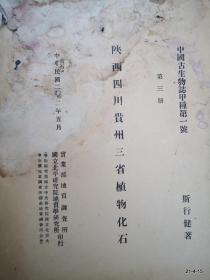 中國古生物誌甲種第一號
第三册
陝西四川貴州三省植物化石
斯行健著
中華民國二十二年五月
實業部地質調查所
國立北平研究院地質學研究所
印行
21-4-15